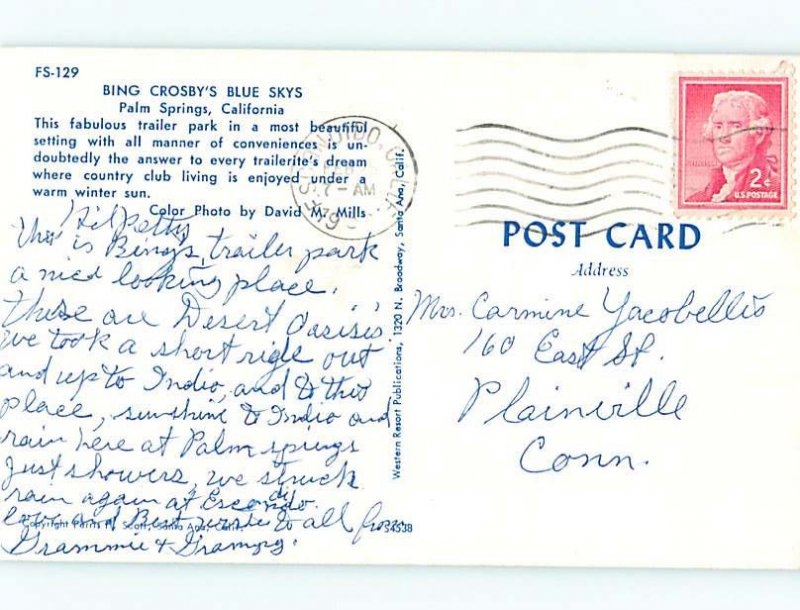 FS-129
BING CROSBY'S BLUE SKYS
Palm Springs, California
This fabulous trailer park in a most beautiful
setting with all manner of conveniences is un-
doubtedly the answer to every trailerite's dream
where country club living is enjoyed under a
warm winter sun.
Color Photo by David M. Mills
Hi Petty
this is Bing's trailer park
a nice looking place.
these are Desert Oasis's
we took a short ride out
and up to Indio, and to this
place, sunshine to Indio and
rain here at Palm springs
just showers, we struck
rain again at Escondido.
love and Best to all from
Grammie & Grampy.
Copyright Ferris H. Scott, Santa Ana, Calif.
S4538
Western Resort Publications, 1320 N. Broadway, Santa Ana, Calif.
ESCONDIDO, CALIF.
7 - AM
2¢
U.S. POSTAGE
POST CARD
Address
Mrs. Carmine Yacobellis
160 East St.
Plainville
Conn.